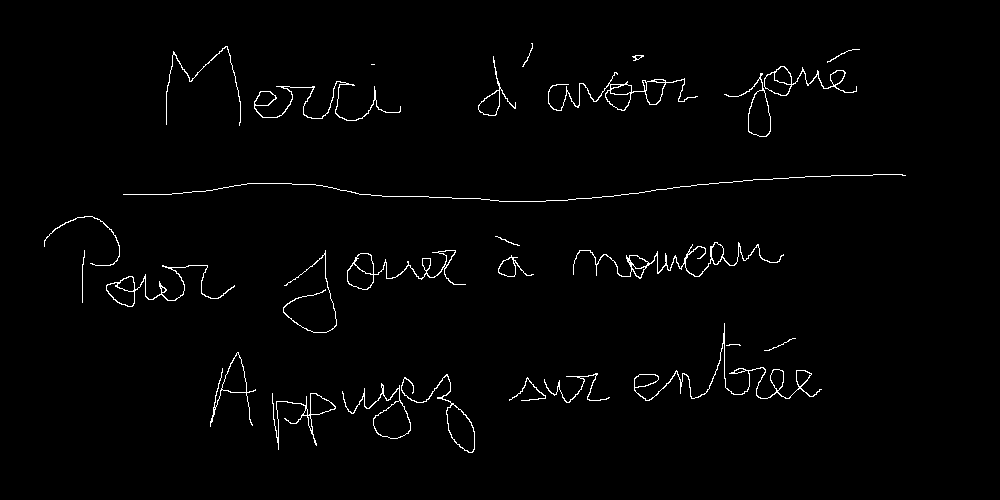 Merci d'avoir joué
Pour jouer à nouveau
Appuyez sur entrée